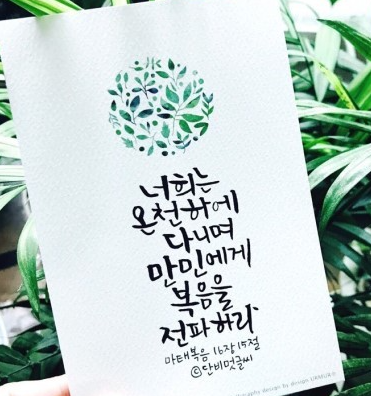 너희는
온천하에
다니며
만민에게
복음을
전파하라
마태복음 16장15절
©단비멋글씨
design by design